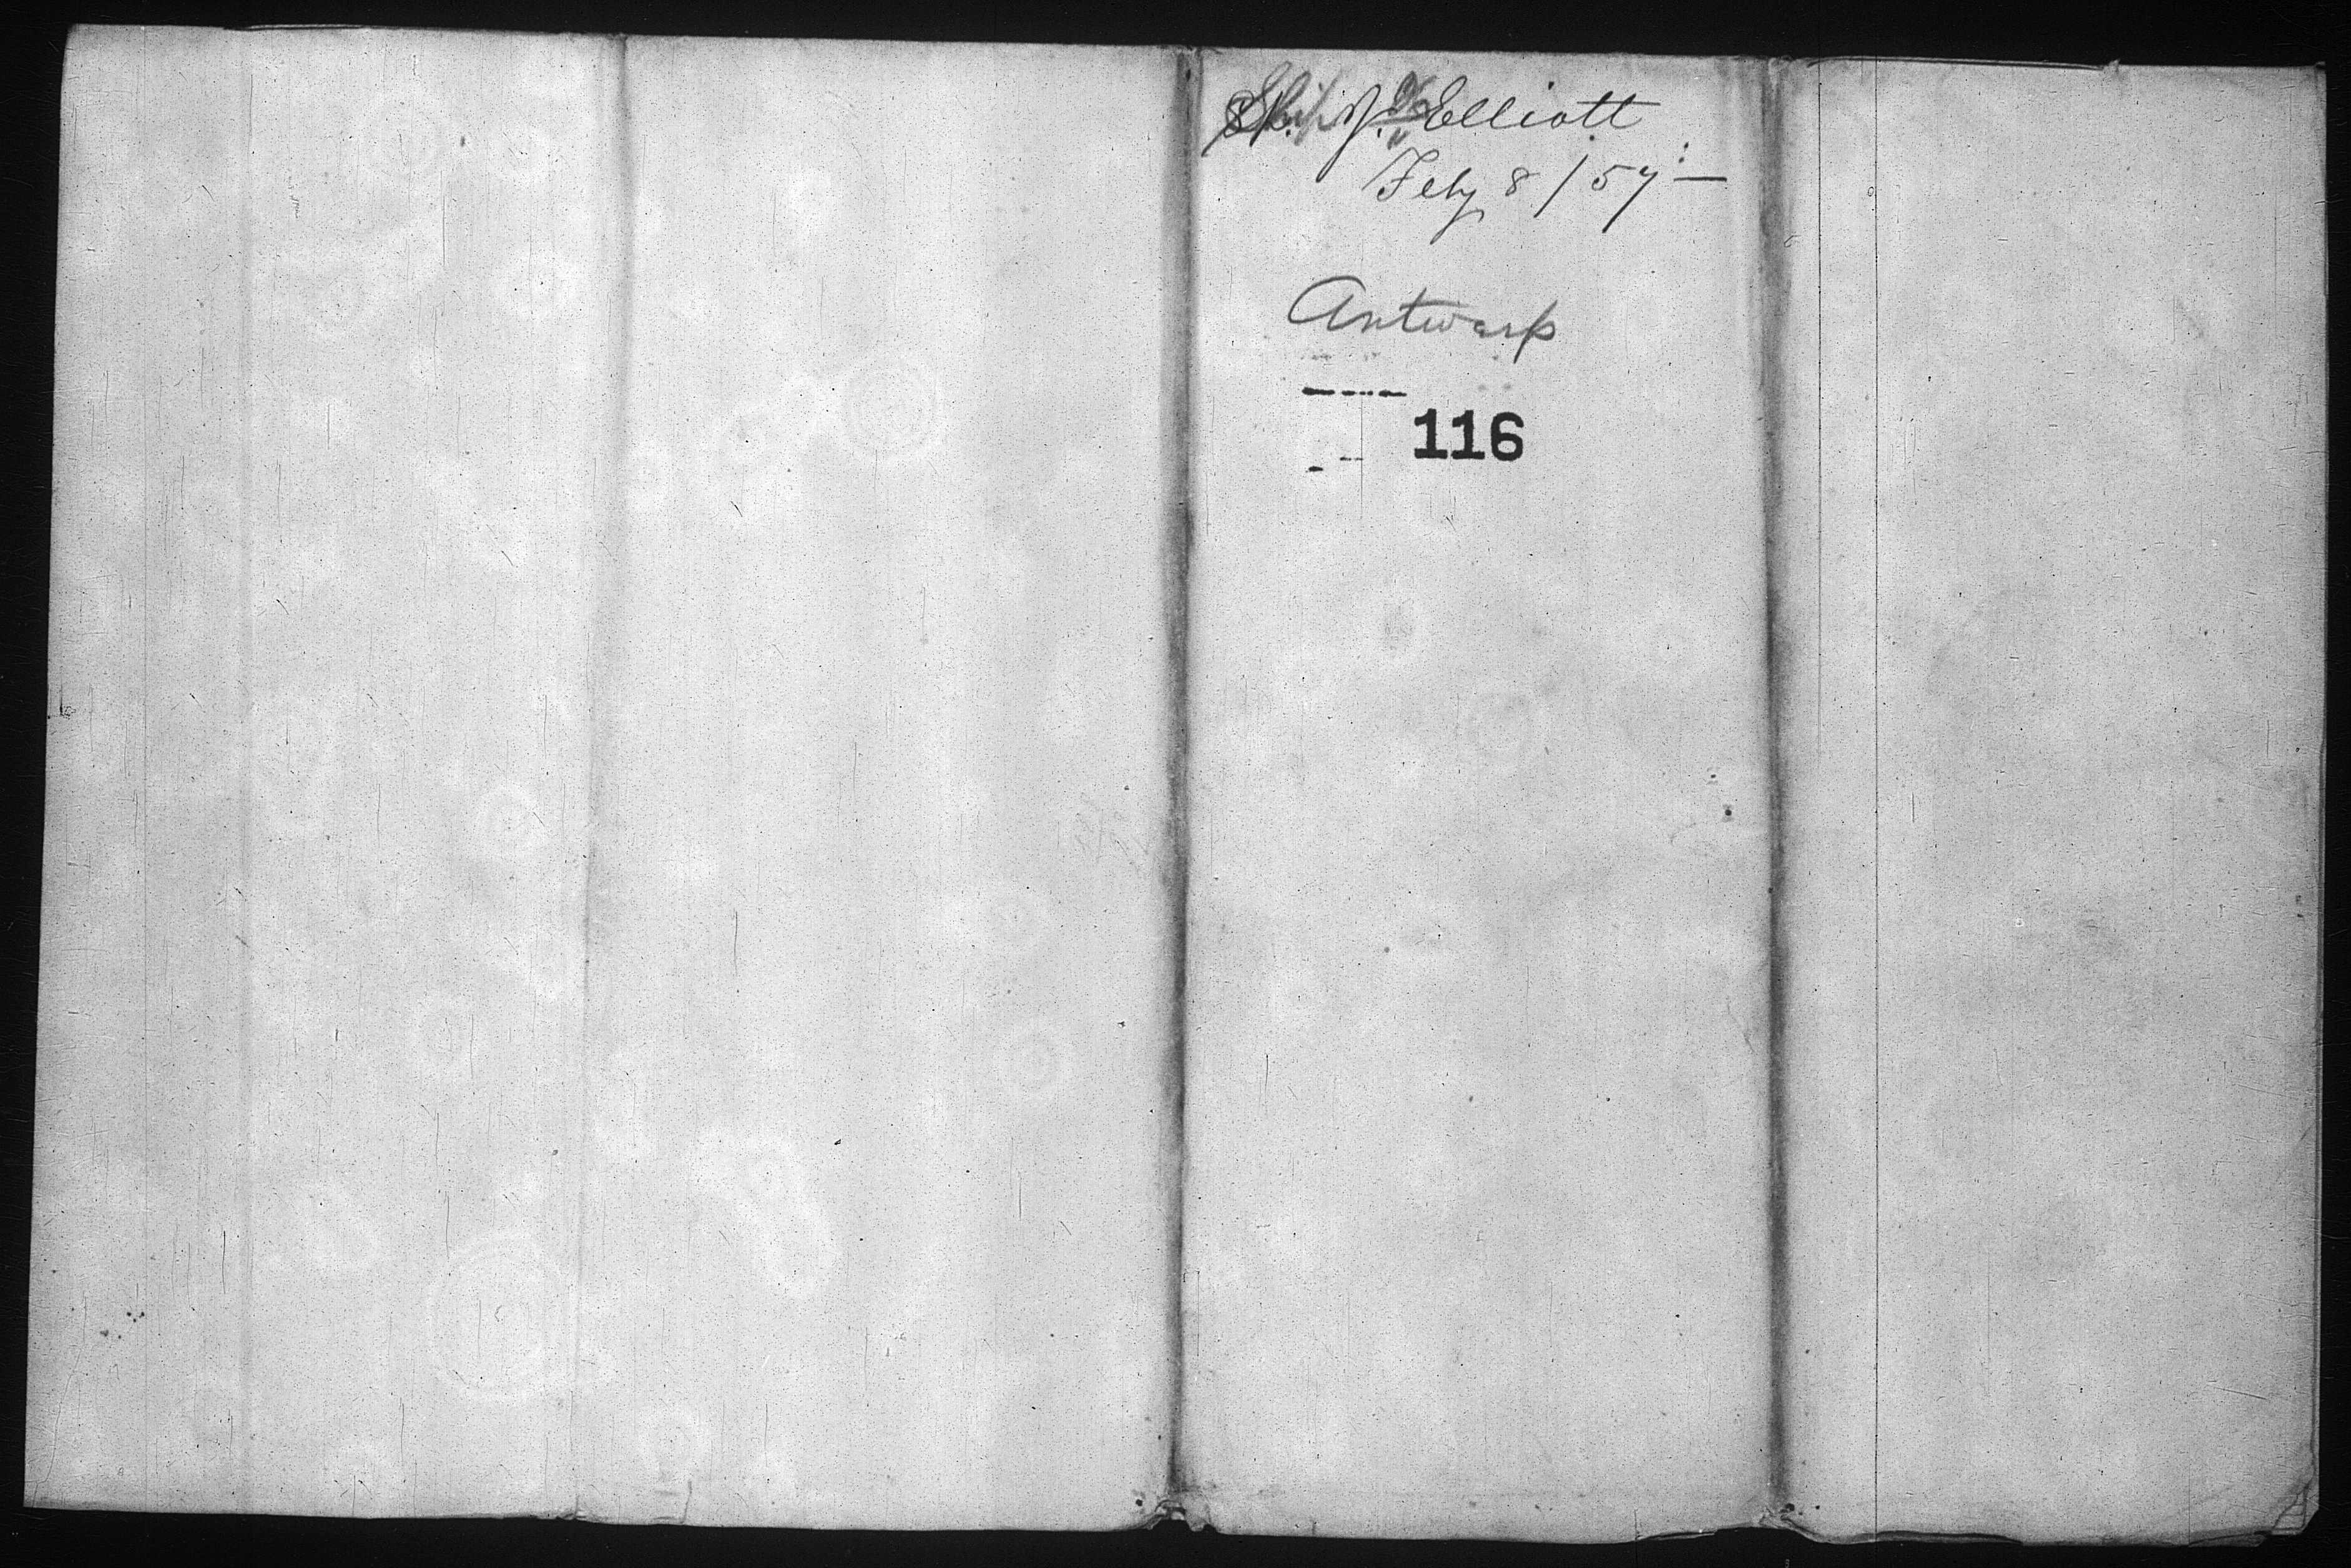 Ship J. Elliott
Feby 8 / 57
Antwerp
116